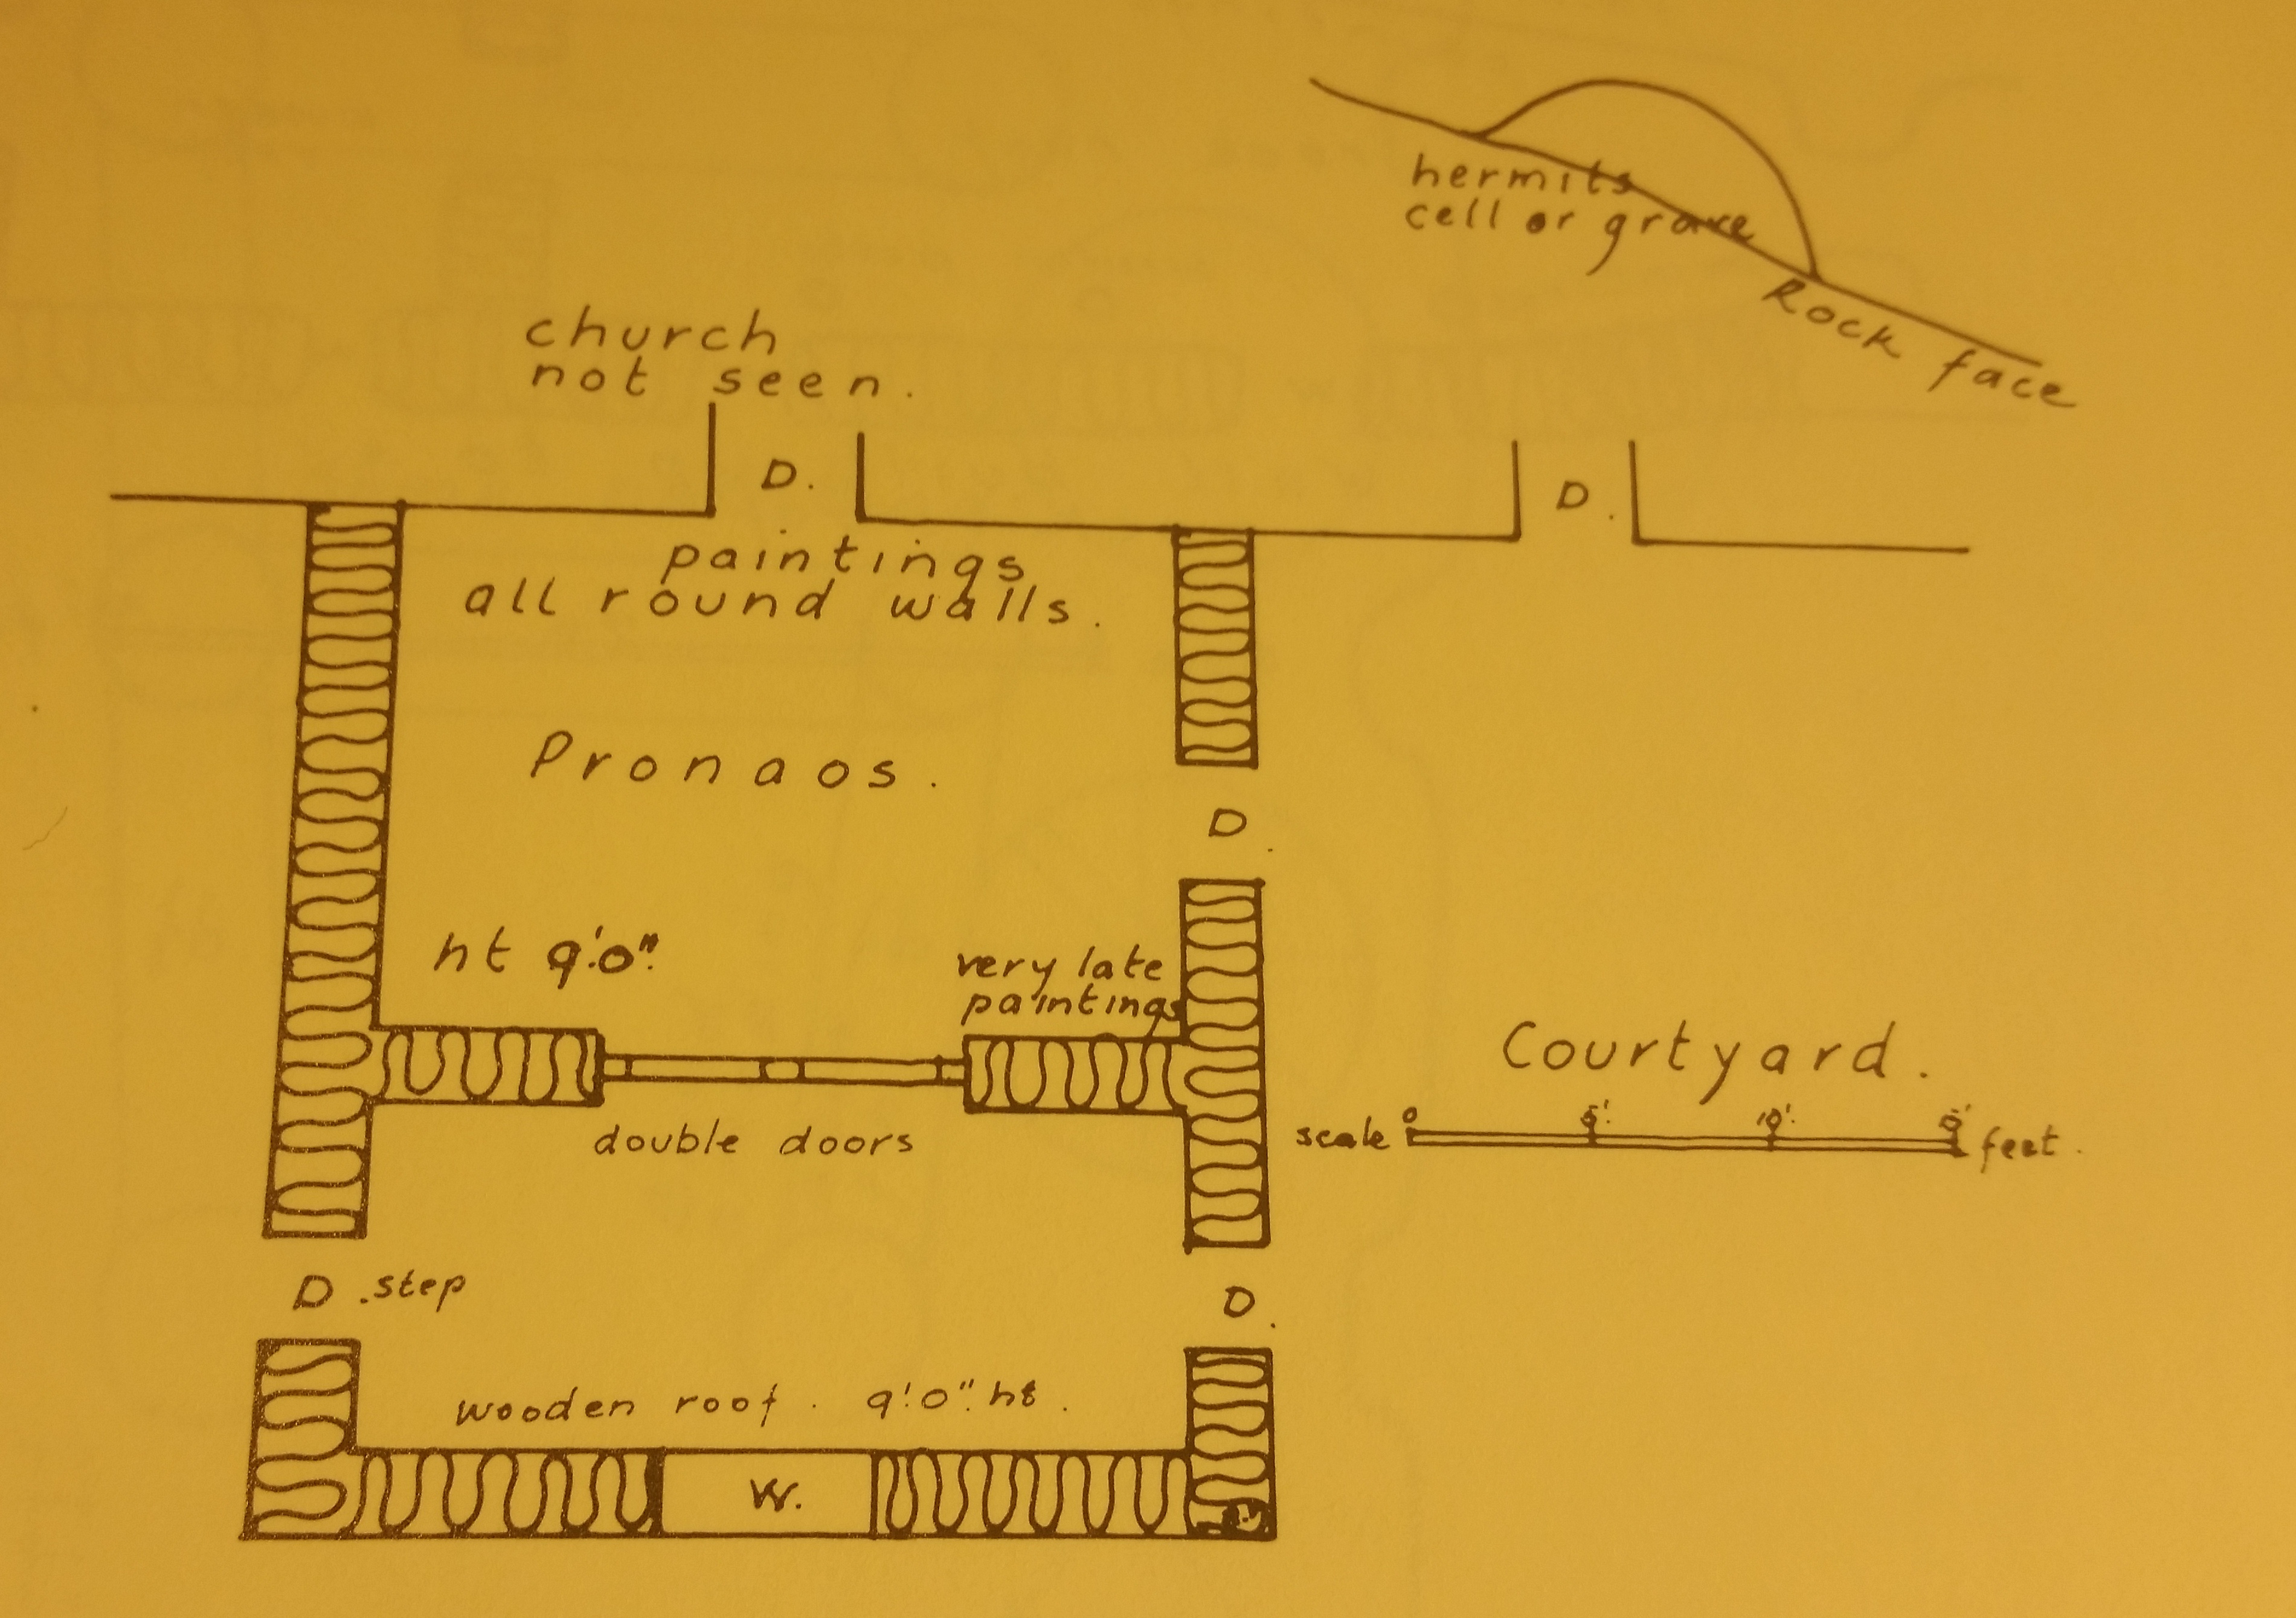 hermits
cell or grave
Rock face
church
not seen.
D.
D.
paintings
all round walls.
Pronaos.
D.
ht 9'.0".
very late
paintings
Courtyard.
double doors
scale 0 5'. 10'. feet.
D. step
D.
wooden roof. 9'.0". ht.
W.